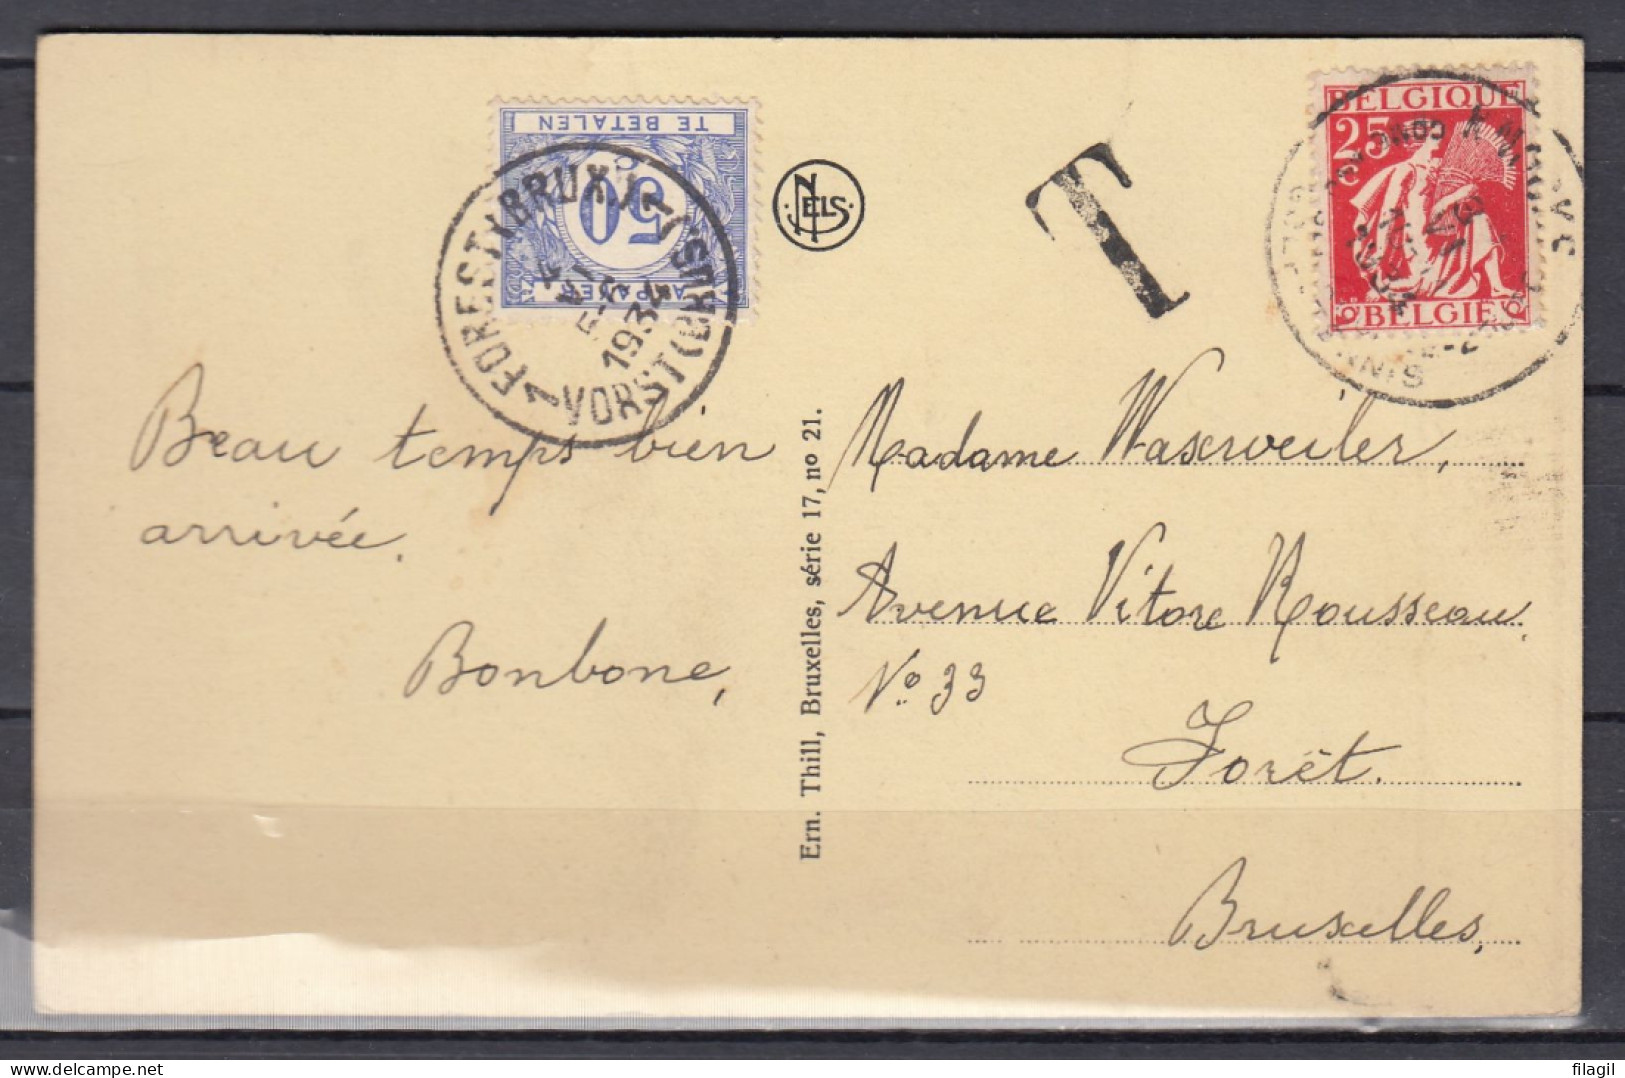 TE BETALEN
50
A PAYER
1 FOREST (BRUX.) 1
VORST (BRUS.)
1934
NELS
T
BELGIQUE
25
c
BELGIE
Beau temps bien
arrivée.
Bonbone,
Ern. Thill, Bruxelles, série 17, nº 21.
Madame Waserweiler,
Avenue Vitore Rousseau,
Nº 33
Forêt.
Bruxelles,
filagil